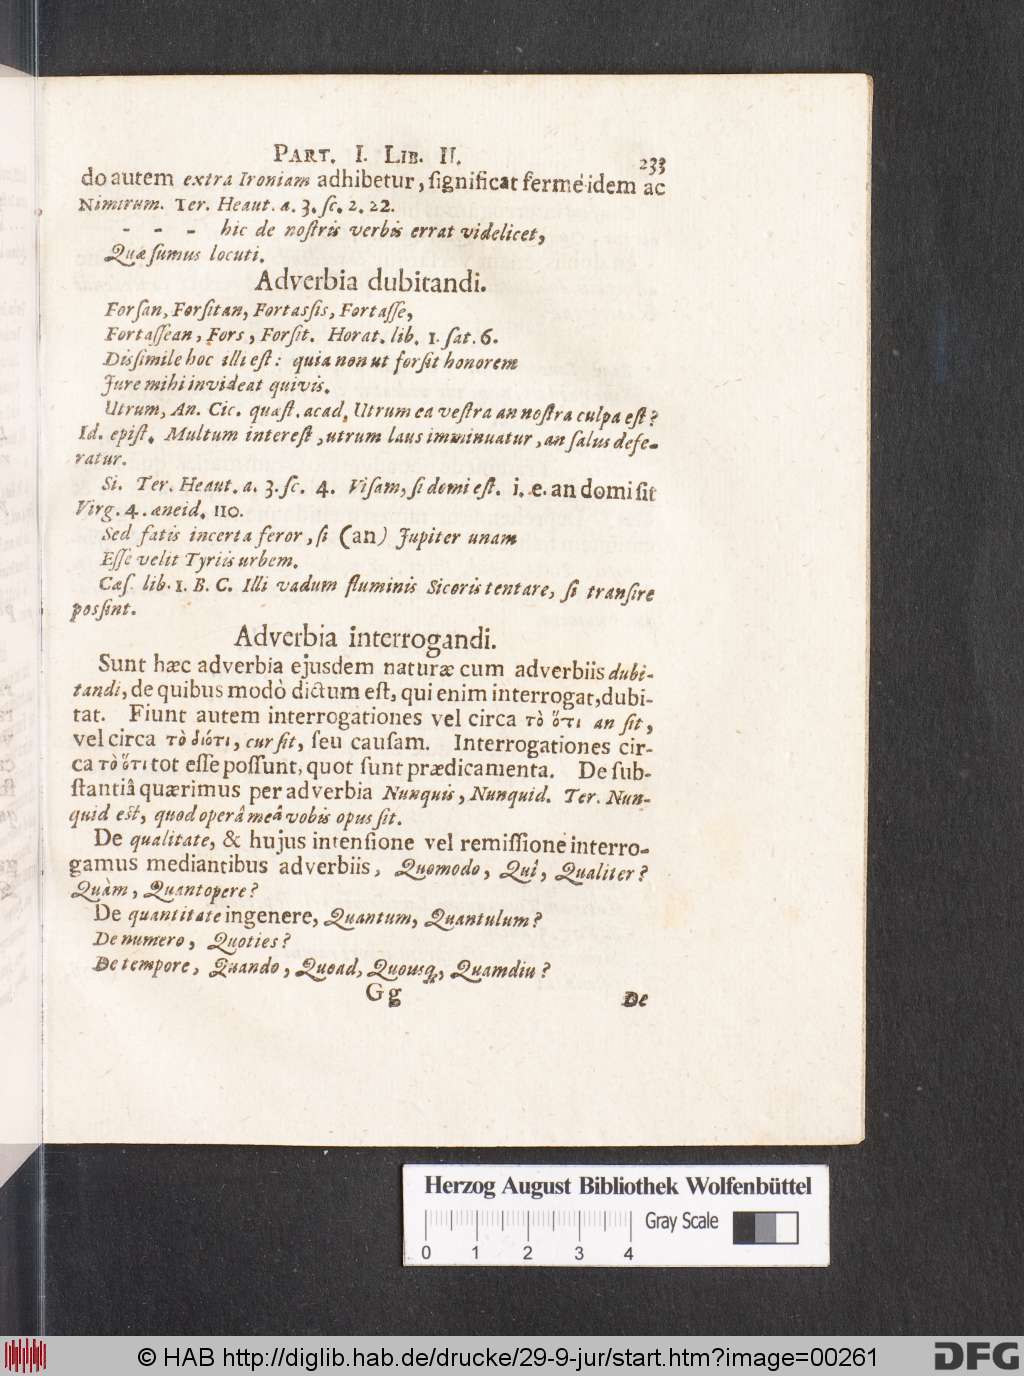 PART. I. LIB. II. 233
do autem extra Ironiam adhibetur, ſignificat fermè idem ac
Nimirum. Ter. Heaut. a. 3. ſc. 2. 22.
- - - hic de noſtris verbis errat videlicet,
Quæ ſumus locuti.
Adverbia dubitandi.
Forſan, Forſitan, Fortaſſis, Fortaſſe,
Fortaſſean, Fors, Forſit. Horat. lib. 1. ſat. 6.
Diſſimile hoc illi eſt: quia non ut forſit honorem
Jure mihi invideat quivis.
Utrum, An. Cic. quæſt. acad. Utrum ea veſtra an noſtra culpa eſt?
Id. epiſt. Multum intereſt, utrum laus imminuatur, an ſalus deſe-
ratur.
Si. Ter. Heaut. a. 3. ſc. 4. Viſam, ſi domi eſt. i. e. an domi ſit
Virg. 4. aneid. 110.
Sed fatis incerta feror, ſi (an) Jupiter unam
Eſſe velit Tyriis urbem.
Cæſ. lib. 1. B. C. Illi vadum fluminis Sicoris tentare, ſi tranſire
poſſint.
Adverbia interrogandi.
Sunt hæc adverbia ejusdem naturæ cum adverbiis dubi-
tandi, de quibus modò dictum eſt, qui enim interrogat, dubi-
tat. Fiunt autem interrogationes vel circa τὸ ὅτι an ſit,
vel circa τὸ διότι, cur ſit, ſeu cauſam. Interrogationes cir-
ca τὸ ὅτι tot eſſe poſſunt, quot ſunt prædicamenta. De ſub-
ſtantiâ quærimus per adverbia Nunquis, Nunquid. Ter. Nun-
quid eſt, quod operâ meâ vobis opus ſit.
De qualitate, & hujus intenſione vel remiſſione interro-
gamus mediantibus adverbiis, Quomodo, Quî, Qualiter?
Quàm, Quantopere?
De quantitate in genere, Quantum, Quantulum?
De numero, Quoties?
De tempore, Quando, Quoad, Quousq, Quamdiu?
Gg De
Herzog August Bibliothek Wolfenbüttel
Gray Scale
0 1 2 3 4
© HAB http://diglib.hab.de/drucke/29-9-jur/start.htm?image=00261
DFG